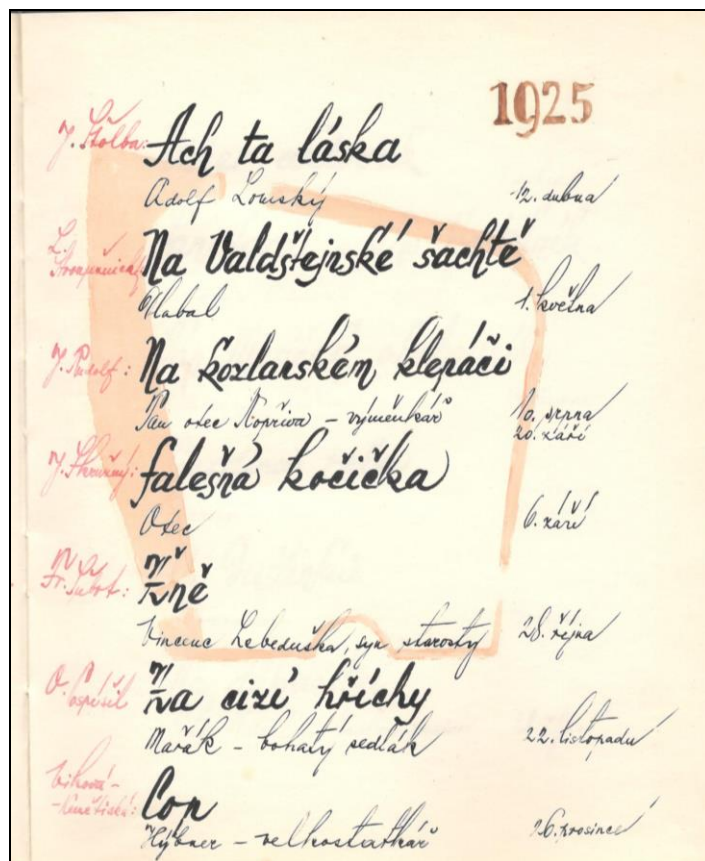 1925
J. Štolba: Ach ta láska
Adolf Lomský 12. dubna
L. Stroupežnický Na Valdštejnské šachtě
Hlabal 1. května
J. Rudolf: Na kozlanském klepáči
Pan otec Kopřiva – výměnkář 10. srpna
20. září
J. Skružný: falešná kočička
Otec 6. září
Fr. Šubrt: Žně
Vincenc Lebeduška, syn starosty 28. října
O. Pospíšil Za cizí hříchy
Mařák – bohatý sedlák 22. listopadu
Viková-
-Kunětická: Cop
Hýbner – velkostatkář 26. prosince